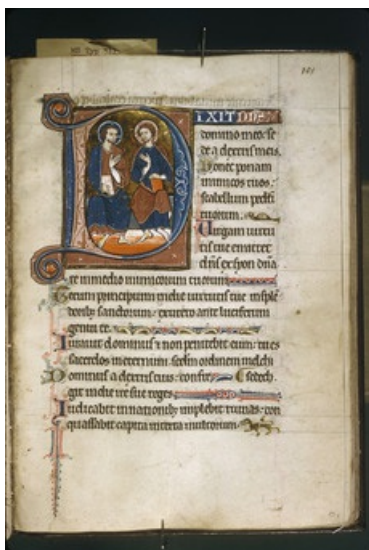 DIXIT DN̄S
domino meo: se
de a dextris meis.
Donec ponam
inimicos tuos:
scabellum pedū
tuorum.
Uirgam uirtu
tis tue emittet
dn̄s ex syon: dn̄a
re in medio inimicorum tuorum
Tecum principium in die uirtutis tue in splē
doribꝫ sanctorum: ex utero ante luciferum
genui te.
Iurauit dominus ⁊ non penitebit eum: tu es
sacerdos in eternum scdm ordinem melchi
Dominus a dextris tuis: confre sedech.
git in die ire sue reges.
Iudicabit in nationibꝫ implebit ruinas: con
quassabit capita in terra multorum.